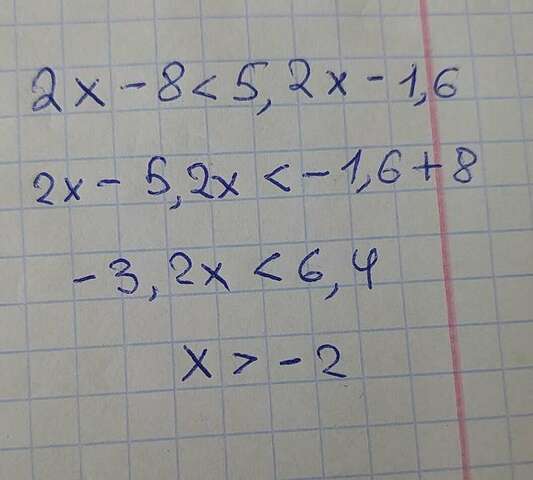 2x - 8 < 5,2x - 1,6
2x - 5,2x < -1,6 + 8
-3,2x < 6,4
x > -2